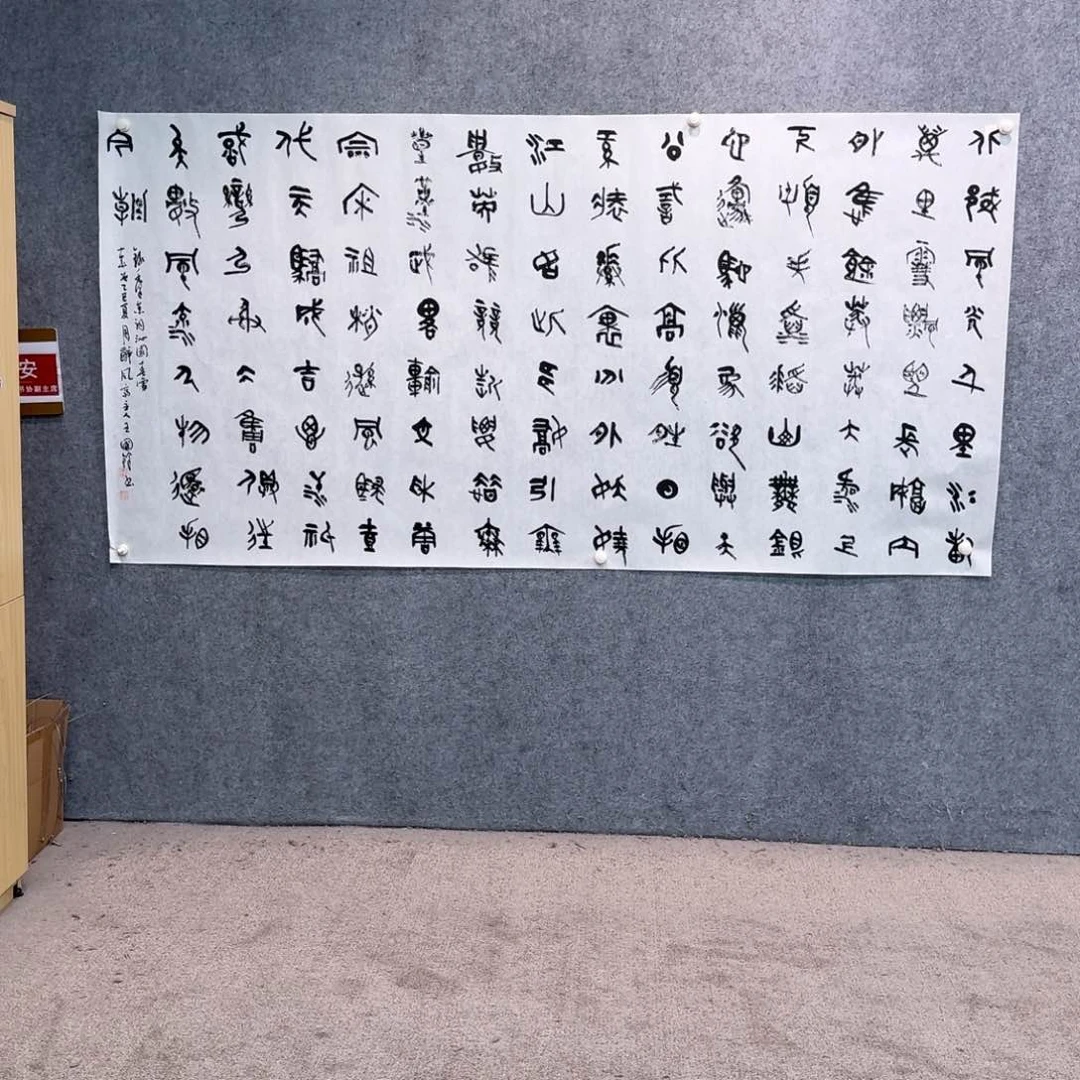 北國風光千里冰封
萬里雪飄望長城內
外惟餘莽莽大河上
下頓失滔滔山舞銀
蛇原馳蠟象欲與天
公試比高須晴日看
紅裝素裹分外妖嬈
江山如此多嬌引無
數英雄競折腰惜秦
皇漢武略輸文采唐
宗宋祖稍遜風騷一
代天驕成吉思汗只
識彎弓射大雕俱往
矣數風流人物還看
今朝
錄毛澤東詞沁園春雪
乙巳夏月醉風齋主人王國
安
协副主席